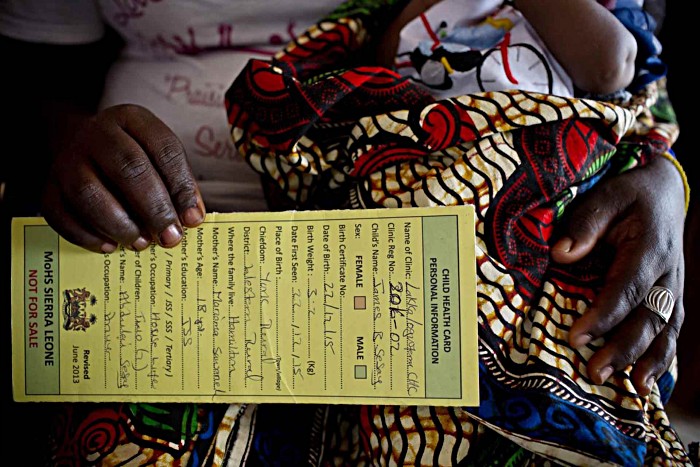 CHILD HEALTH CARD
PERSONAL INFORMATION
Name of Clinic: Lakka
Clinic Reg No.:
Child's Name: James B. Sesay
Sex: FEMALE MALE
Birth Certificate No:
Date of Birth: 22/12/15
Birth Weight: 3.2 (Kg)
Date First Seen: /12/15
Place of Birth: (Town/Village)
Chiefdom: York Rural
District: Western Rural
Where the family lives: Hamilton
Mother's Name: Mariama
Mother's Age: 18
Mother's Education: JSS
Primary / JSS / SSS Tertiary)
Mother's Occupation: House wife
of Children: Two (2)
Name: Abdulai Sesay
Occupation:
MoHS SIERRA LEONE
NOT FOR SALE
Revised
June 2013